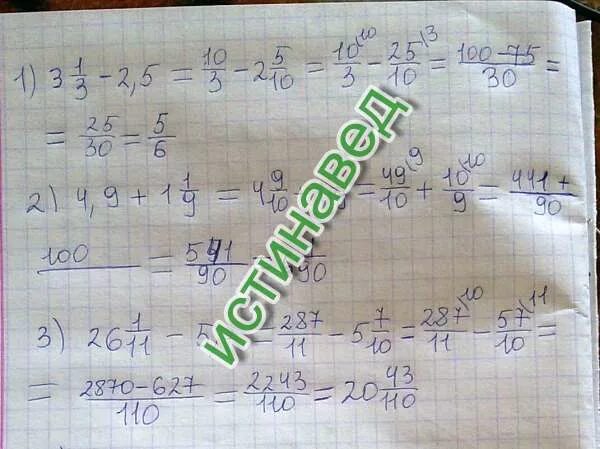 1) 3 1/3 - 2,5 = 10/3 - 2 5/10 = 10/3 \10 - 25/10 \3 = 100-75/30 =
= 25/30 = 5/6
2) 4,9 + 1 1/9 = 4 9/10 = 49/10 \9 + 10/9 \10 = 441+/90
100 = 541/90 /90
3) 26 1/11 - 5 = 287/11 - 5 7/10 = 287/11 \10 - 57/10 \11 =
= 2870-627/110 = 2243/110 = 20 43/110
истинавед